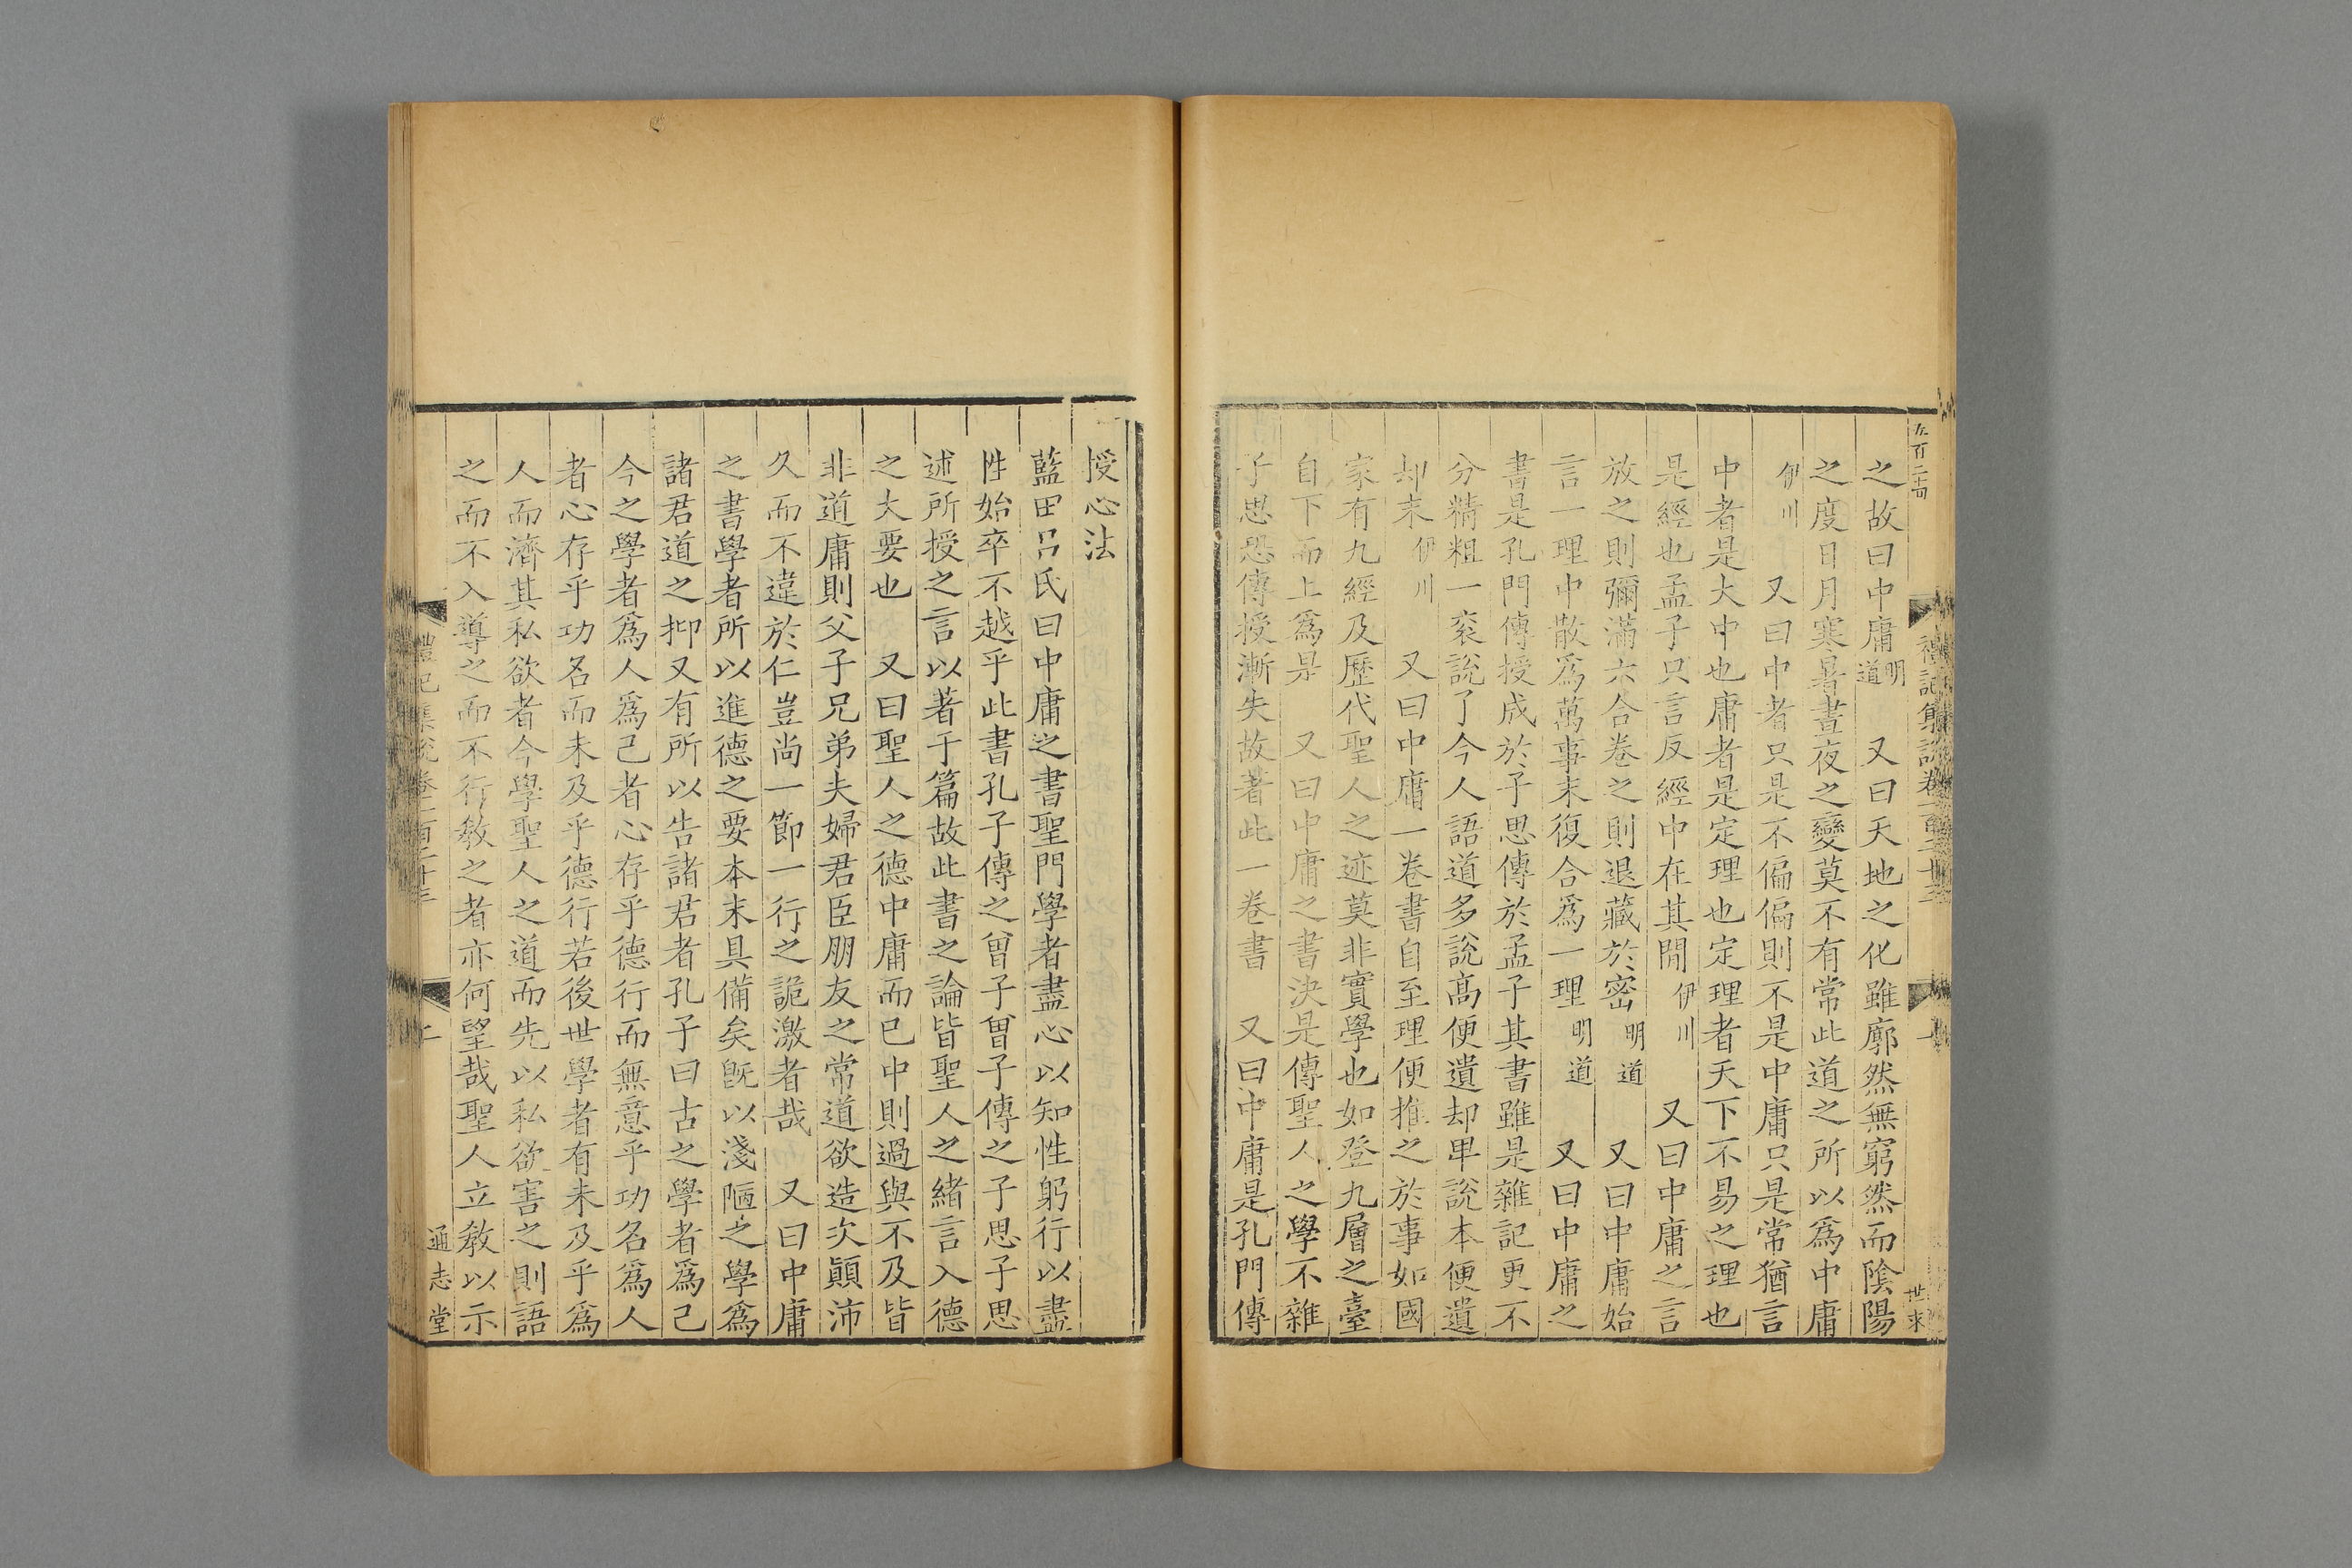 之故曰中庸明道　又曰天地之化雖廓然無窮然而陰陽
之度日月寒暑晝夜之變莫不有常此道之所以爲中庸
伊川　又曰中者只是不偏偏則不是中庸只是常猶言
中者是大中也庸者是定理也定理者天下不易之理也
是經也孟子只言反經中在其閒伊川　又曰中庸之言
放之則彌滿六合卷之則退藏於密明道　又曰中庸始
言一理中散爲萬事末復合爲一理明道　又曰中庸之
書是孔門傳授成於子思傳於孟子其書雖是雜記更不
分精粗一衮說了今人語道多說高便遺却卑說本便遺
却末伊川　又曰中庸一卷書自至理便推之於事如國
家有九經及歷代聖人之迹莫非實學也如登九層之臺
自下而上爲是　又曰中庸之書決是傳聖人之學不雜
子思恐傳授漸失故著此一卷書　又曰中庸是孔門傳
授心法
藍田呂氏曰中庸之書聖門學者盡心以知性躬行以盡
性始卒不越乎此書孔子傳之曾子曾子傳之子思子思
述所授之言以著于篇故此書之論皆聖人之緒言入德
之大要也　又曰聖人之德中庸而已中則過與不及皆
非道庸則父子兄弟夫婦君臣朋友之常道欲造次顚沛
久而不違於仁豈尚一節一行之詭激者哉　又曰中庸
之書學者所以進德之要本末具備矣旣以淺陋之學爲
諸君道之抑又有所以告諸君者孔子曰古之學者爲己
今之學者爲人爲己者心存乎德行而無意乎功名爲人
者心存乎功名而未及乎德行若後世學者有未及乎爲
人而濟其私欲者今學聖人之道而先以私欲害之則語
之而不入導之而不行敎之者亦何望哉聖人立敎以示
通志堂